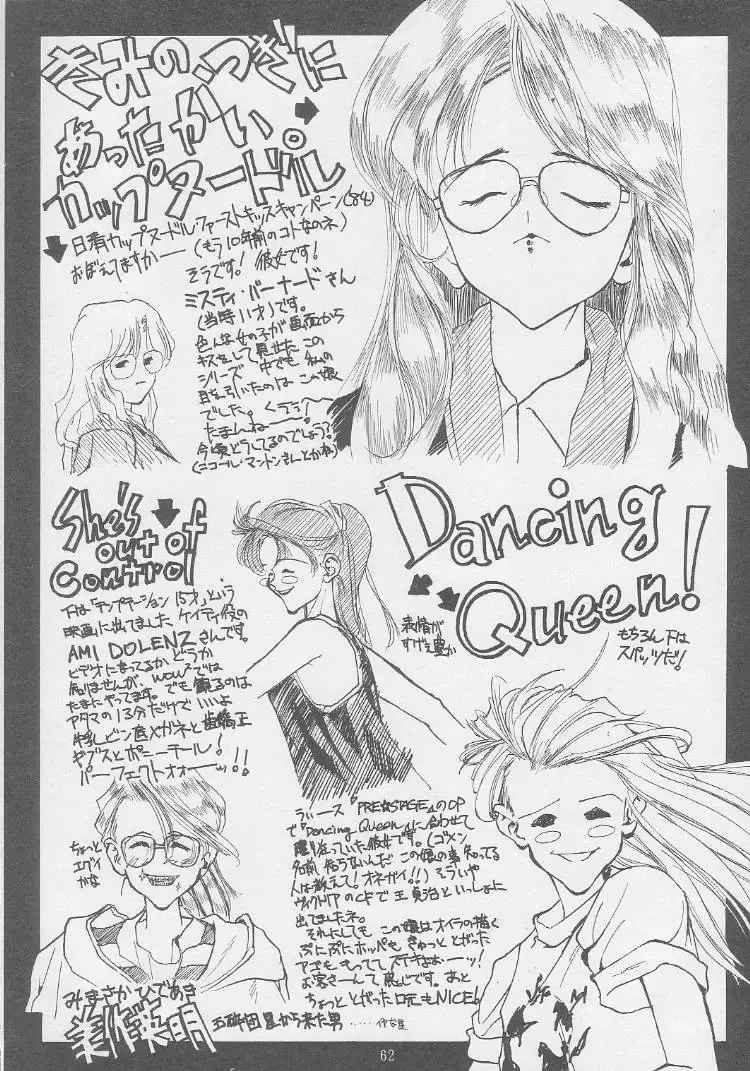 きみの、つぎに
あったかい
カップヌードル。
日清カップヌードルファーストキッスキャンペーン('84)
おぼえてますかー (もう10年前のコトなのネ)
そうです! 彼女です!
ミスティ・バーナードさん
(当時11才)です。
色んな女の子が画面から
キスをして見せたこの
シリーズ 中でも私の
目を引いたのはこの娘
でした。くぅぅ〜
たまんねー
今頃どうしてるのでしょう?
(ニコール・マンドンさんとかね)
She's
out of
Control
下は「テンプテーション15才」という
映画に出てました ケイティ役の
AMI DOLENZさんです。
ビデオになってるかどうか
知りませんが、wowwowでは
たまにやってます。でも観るのは
アタマの13分だけでいいよ
牛乳ビン底メガネと歯矯正
やブスとポニーテール!
パーフェクトォォーッ!!
Dancing
Queen!
表情が
すげぇ豊か
もちろん下は
スパッツだ!
ちょっと
エグイ
かな
うぃース「PRE★STAGE」のOP
で「Dancing Queen」に合わせて
踊り狂っていた彼女です。(ゴメン
名前知らないんだ この娘の事知ってる
人は教えて!オネガイ!!) そういや
ヴィクトリアのCFで王貞治といっしょに
出てましたネ。
それにしてもこの娘はオイラの描く
ぷにぷにホッペもきゅっととがった
アゴももってて ステキよぉーッ!
お客さーんて感じです。あと
ちょっととがった口元もNICE!
みまさかひであき
美作英明
五反田星から来た男
62